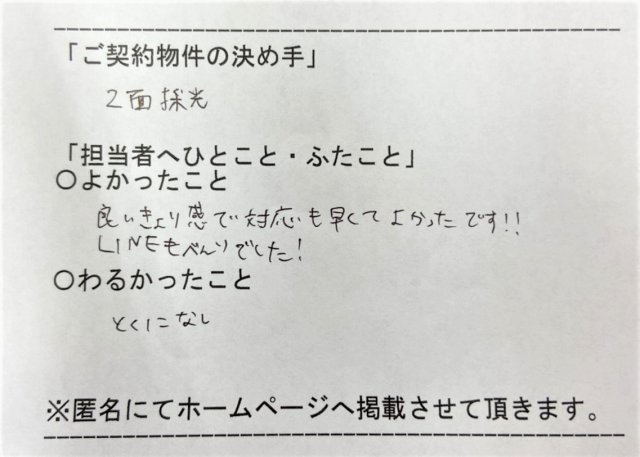 「ご契約物件の決め手」
2面採光
「担当者へひとこと・ふたこと」
○よかったこと
良いきょり感で対応も早くてよかったです!!
LINEもべんりでした!
○わるかったこと
とくになし
※匿名にてホームページへ掲載させて頂きます。